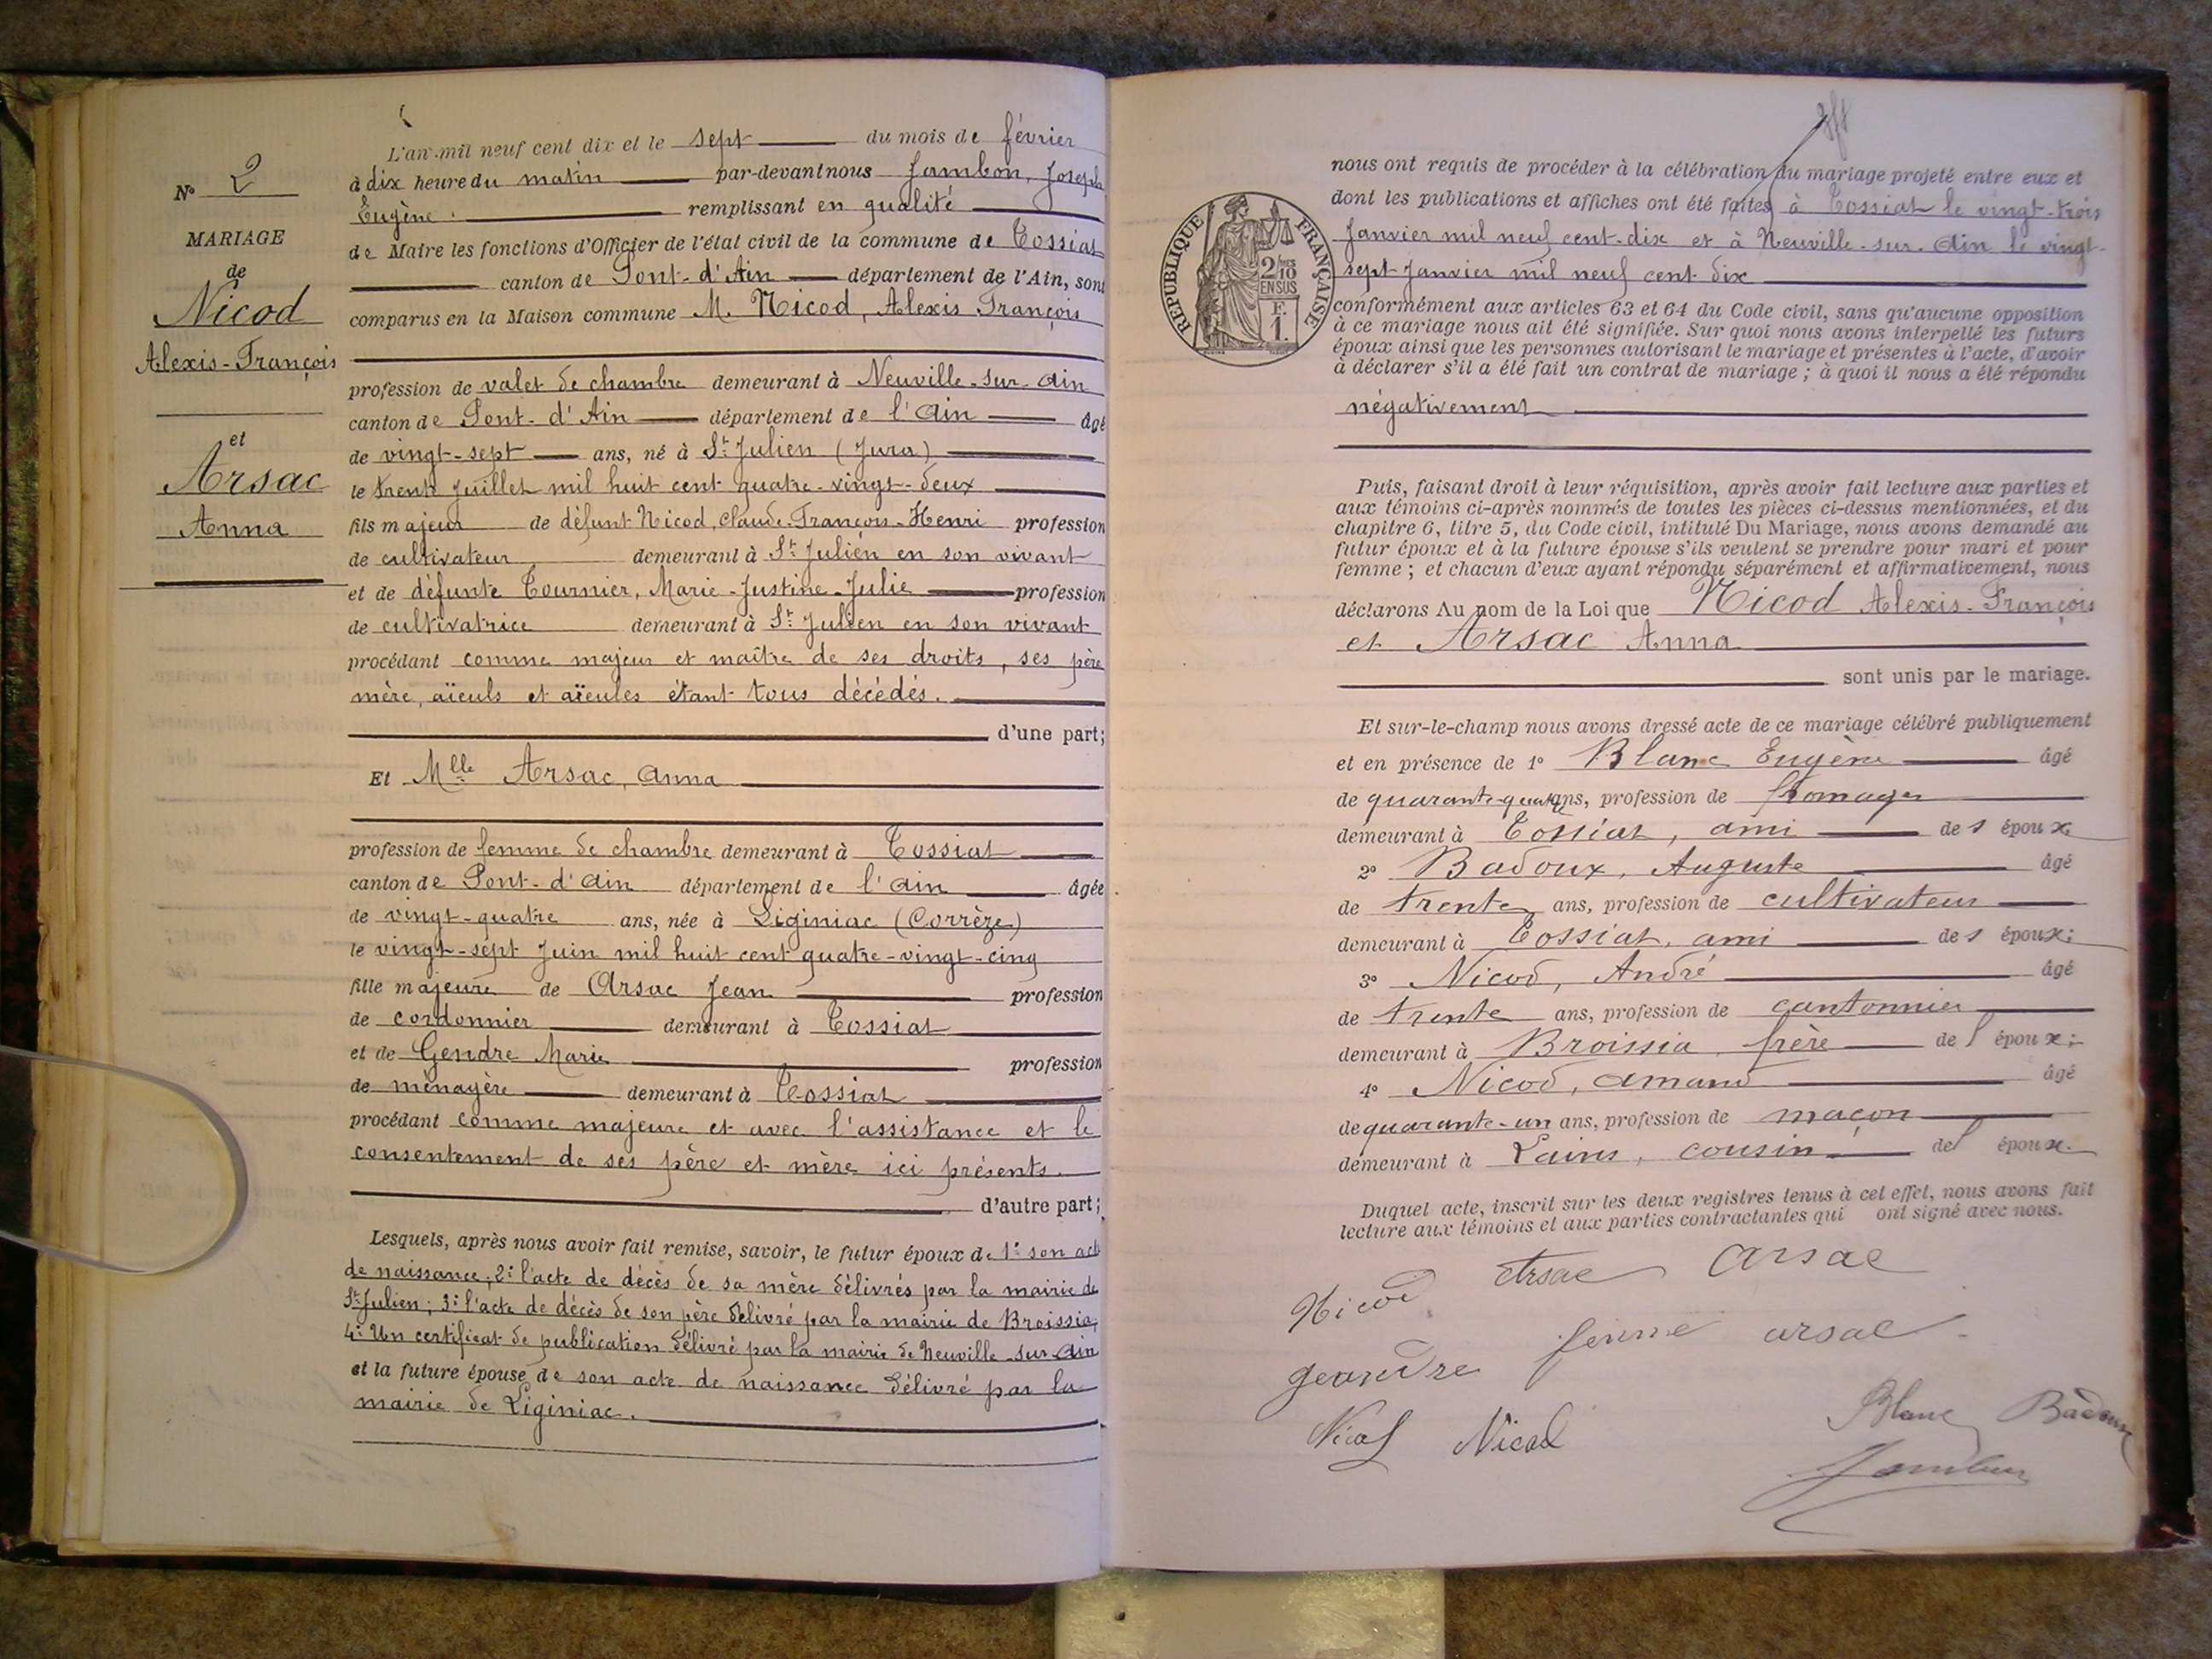 N° 2
MARIAGE
de
Nicod
Alexis-François
et
Arsac
Anna
L'an mil neuf cent dix et le sept du mois de février
à dix heure du matin par-devant nous Jambon, Joseph
Eugène. remplissant en qualité
de Maire les fonctions d'Officier de l'état civil de la commune de Tossiat
canton de Pont-d'Ain département de l'Ain, sont
comparus en la Maison commune M. Nicod, Alexis François
profession de valet de chambre demeurant à Neuville-sur-Ain
canton de Pont-d'Ain département de l'Ain âgé
de vingt-sept ans, né à St Julien (Jura)
le trente Juillet mil huit cent quatre-vingt-deux
fils majeur de défunt Nicod, Claude-François-Henri profession
de cultivateur demeurant à St Julien en son vivant
et de défunte Tournier, Marie-Justine-Julie profession
de cultivatrice demeurant à St Julien en son vivant
procédant comme majeur et maître de ses droits, ses père
mère, aïeuls et aïeules étant tous décédés.
d'une part;
Et Mlle Arsac, Anna
profession de femme de chambre demeurant à Tossiat
canton de Pont-d'Ain département de l'Ain âgée
de vingt-quatre ans, née à Liginiac (Corrèze)
le vingt-sept Juin mil huit cent quatre-vingt-cinq
fille majeure de Arsac Jean profession
de cordonnier demeurant à Tossiat
et de Gendre Marie profession
de ménagère demeurant à Tossiat
procédant comme majeure et avec l'assistance et le
consentement de ses père et mère ici présents.
d'autre part;
Lesquels, après nous avoir fait remise, savoir, le futur époux de 1° son acte
de naissance; 2° l'acte de décès de sa mère délivrés par la mairie de
St Julien; 3° l'acte de décès de son père délivré par la mairie de Broissia,
4° Un certificat de publication délivré par la mairie de Neuville-sur-Ain
et la future épouse de son acte de naissance délivré par la
mairie de Liginiac.
nous ont requis de procéder à la célébration du mariage projeté entre eux et
dont les publications et affiches ont été faites à Tossiat le vingt-trois
Janvier mil neuf cent-dix et à Neuville-sur-Ain le vingt-
sept Janvier mil neuf cent dix
RÉPUBLIQUE FRANÇAISE
2/10 EN SUS
F. 1.
conformément aux articles 63 et 64 du Code civil, sans qu'aucune opposition
à ce mariage nous ait été signifiée. Sur quoi nous avons interpellé les futurs
époux ainsi que les personnes autorisant le mariage et présentes à l'acte, d'avoir
à déclarer s'il a été fait un contrat de mariage; à quoi il nous a été répondu
négativement
Puis, faisant droit à leur réquisition, après avoir fait lecture aux parties et
aux témoins ci-après nommés de toutes les pièces ci-dessus mentionnées, et du
chapitre 6, titre 5, du Code civil, intitulé Du Mariage, nous avons demandé au
futur époux et à la future épouse s'ils veulent se prendre pour mari et pour
femme; et chacun d'eux ayant répondu séparément et affirmativement, nous
déclarons Au nom de la Loi que Nicod Alexis-François
et Arsac Anna
sont unis par le mariage.
Et sur-le-champ nous avons dressé acte de ce mariage célébré publiquement
et en présence de 1° Blanc Eugène âgé
de quarante-quatre ans, profession de fromager
demeurant à Tossiat, ami des époux
2° Badoux, Auguste âgé
de trente ans, profession de cultivateur
demeurant à Tossiat, ami des époux;
3° Nicod, André âgé
de trente ans, profession de cantonnier
demeurant à Broissia, frère de l'époux;
4° Nicod, Amand âgé
de quarante-un ans, profession de maçon
demeurant à Lains, cousin de l'époux.
Duquel acte, inscrit sur les deux registres tenus à cet effet, nous avons fait
lecture aux témoins et aux parties contractantes qui ont signé avec nous.
Nicod Arsac Arsac
geandre femme arsac
Nicod Nicod
Blanc Badoux
Jambon